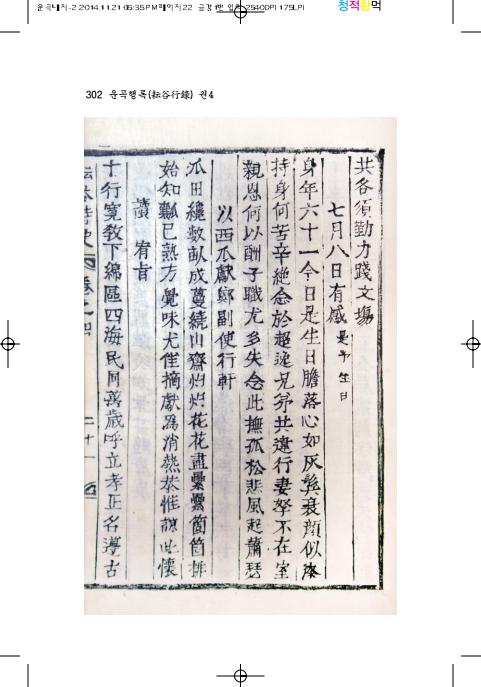 운곡내지-2 2014.11.21 05:35 PM 페이지22
2540DPI 175LPI
청적황먹
302 운곡행록(耘谷行錄) 권4
共各須勤力踐文塲
七月八日有感 是予生日
身年六十一今日是生日膽落心如灰鬢衰顔似漆
持身何苦辛絶念於超逸兄弟共遠行妻孥不在室
親恩何以酬子職尤多失念此撫孤松悲風起蕭瑟
以西瓜獻鄭副使行軒
瓜田纔數畝成蔓繞山齋灼灼花花盡纍纍箇箇排
始知瓤已熟方覺味尤佳摘獻爲消熱恭惟諒此懷
讀宥旨
十行寬敎下綿區四海民同萬歲呼立孝正名遵古
耘谷詩史 卷之四 二十一